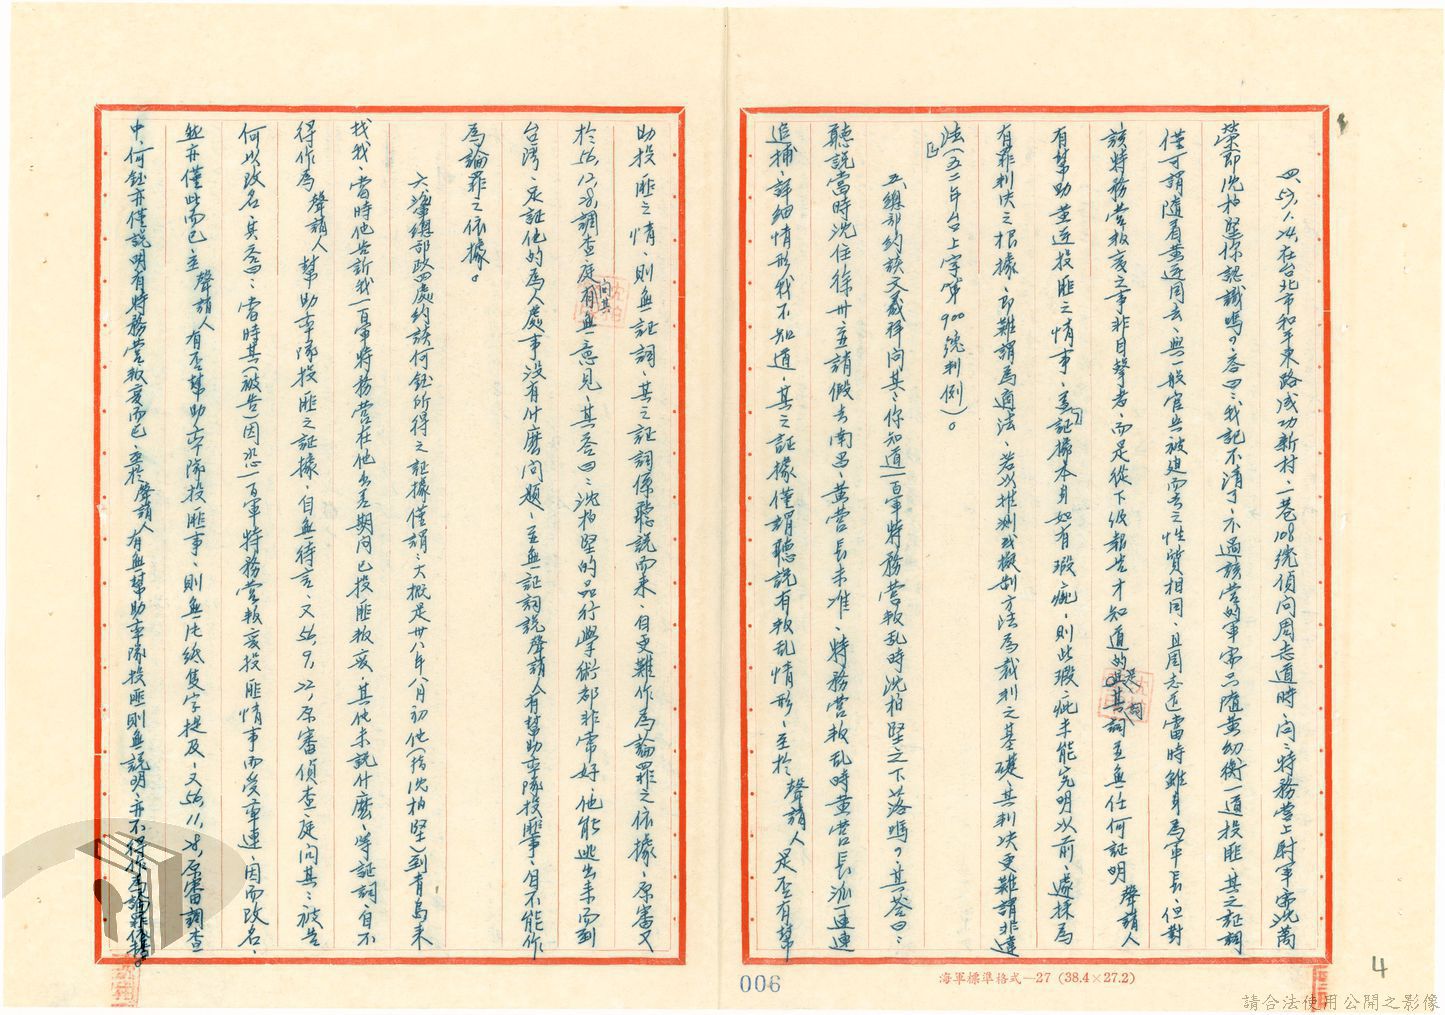 四、57.1.24.在台北市和平東路成功新村二巷108號偵問周志道時問：特務營上尉軍需沈萬
榮即沈柏堅你認識嗎？答曰：我記不清了，不過該營的軍需只隨黃幼衡一道投匪，其之証詞
僅可謂隨着黃逆同去，與一般官兵被迫而去之性質相同，且周志道當時雖身為軍長，但對
該特務營叛變之事非目擊者，而是從下級報告才知道的，是其詞並無任何証明聲請人
有幫助黃逆投匪之情事，証據本身如有瑕疵，則此瑕疵未能究明以前，遽採為
有罪判決之根據，即難謂為適法，若以推測或擬制方法為裁判之基礎，其判決更難謂非違
法（五二年台上字第900號判例）。
五、總部約談文義祥問其：你知道一百軍特務營叛乱時沈柏堅之下落嗎？其答曰：
聽說當時沈住徐州立請假去南昌，黃營長未准，特務營叛乱時黃營長派一連連
追捕，詳細情形我不知道，其之証據僅謂聽說有叛乱情形，至於聲請人是否有幫
助投匪之情，則無証詞，其之証詞係聽說而來，自更難作為論罪之依據，原審又
於56.12.8.調查庭問其有無意見，其答曰：沈柏堅的品行學術都非常好，他能逃出來而到
台灣，足証他的為人處事沒有什麼問題，並無一証詞說聲請人有幫助率隊投匪事，自不能作
為論罪之依據。
六、總部政四處約談何鈺所得之証據僅謂：大概是卅八年八月初他（指沈柏堅）到青島來
找我，當時他告訴我一百軍特務營在他出差期間已投匪叛變，其他未說什麼，等証詞自不
得作為聲請人幫助率隊投匪之証據，自無待言，又56.9.22.原審偵查庭問其：被告
何以改名，其答曰：當時其（被告因恐一百軍特務營叛變投匪情事而受牽連，因而改名，
無亦僅此而已，至聲請人有否幫助率隊投匪事，則無片紙隻字提及，又56.11.8.原審調查
中，何鈺亦僅說明有特務營叛變而已，至於聲請人有無幫助率隊投匪則無說明，亦不得作為論罪依據。
006
海軍標準格式—27（38.4×27.2）
4
請合法使用公開之影像